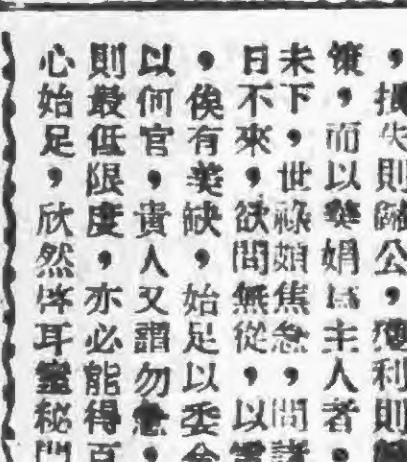 ，損失則歸公，獲利則
策，而以葵娟為主人者。
未下，世祿頗焦急，問諸
日不來，欲問無從，以電
，俟有美缺，始足以委令
以何官，貴人又謂勿急，
則最低限度，亦必能得百
心始足，欣然啓耳室秘門